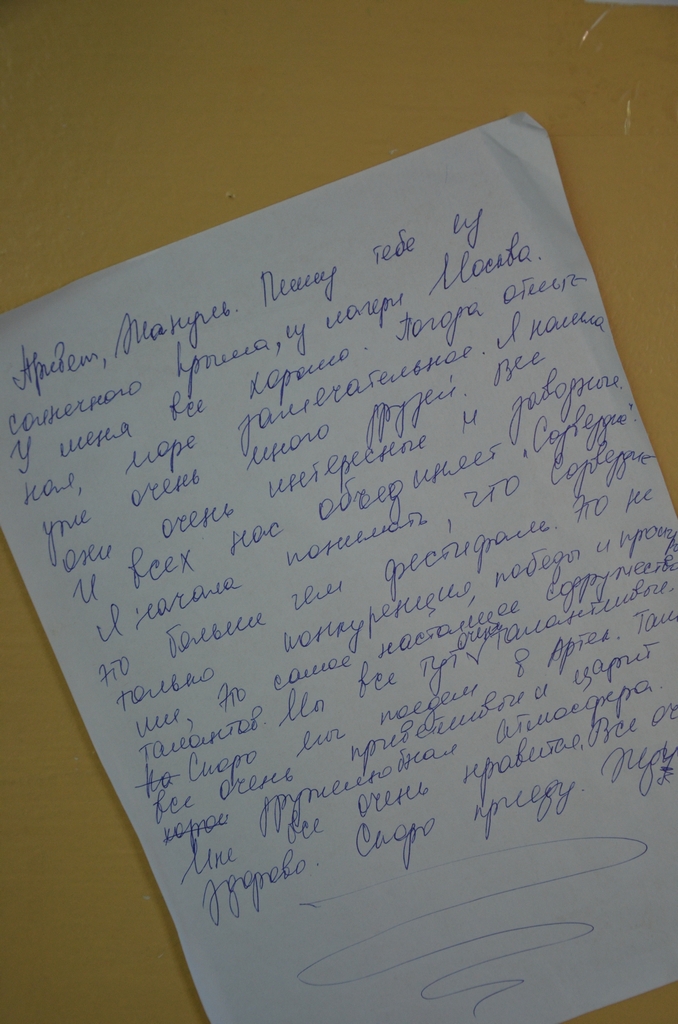 Привет, Жануль. Пишу тебе из
солнечного Крыма, из лагеря Москва.
У меня все хорошо. Погода отлич-
ная, море замечательное. Я нашла
уже очень много друзей. Все
они очень интересные и заводные.
И всех нас объединяет "Созвездие".
Я начала понимать, что Созвездие
это больше чем фестиваль. Это не
только конкуренция, победы и проигры
ши, это самое настоящее содружество
талантов. Мы все тут очень талантливые.
Скоро мы поедем в Артек. Там
все очень приветливые и царит
дружелюбная атмосфера.
Мне все очень нравится. Все оч
здорово. Скоро приеду. Жду